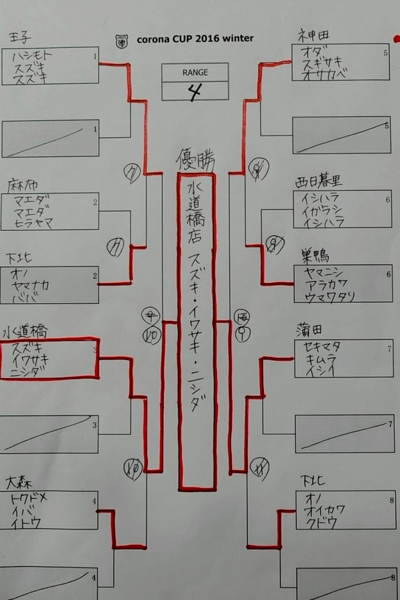 corona CUP 2016 winter
RANGE
4
王子
ハシモト
スズキ
スズキ
1
1
麻布
マエダ
マエダ
ヒラヤマ
2
下北
オノ
ヤマナカ
ババ
2
水道橋
スズキ
イワサキ
ニシダ
3
3
大森
トクドメ
イバ
イトウ
4
4
優勝
水道橋店 スズキ・イワサキ・ニシダ
神田
オダ
スギサキ
オサカベ
5
5
西日暮里
イシハラ
イガラシ
イシハラ
6
巣鴨
ヤマニシ
アラカワ
ウマワタリ
6
蒲田
セキマタ
キムラ
イシイ
7
7
下北
オノ
オイカワ
クドウ
8
8
7
7
10
9